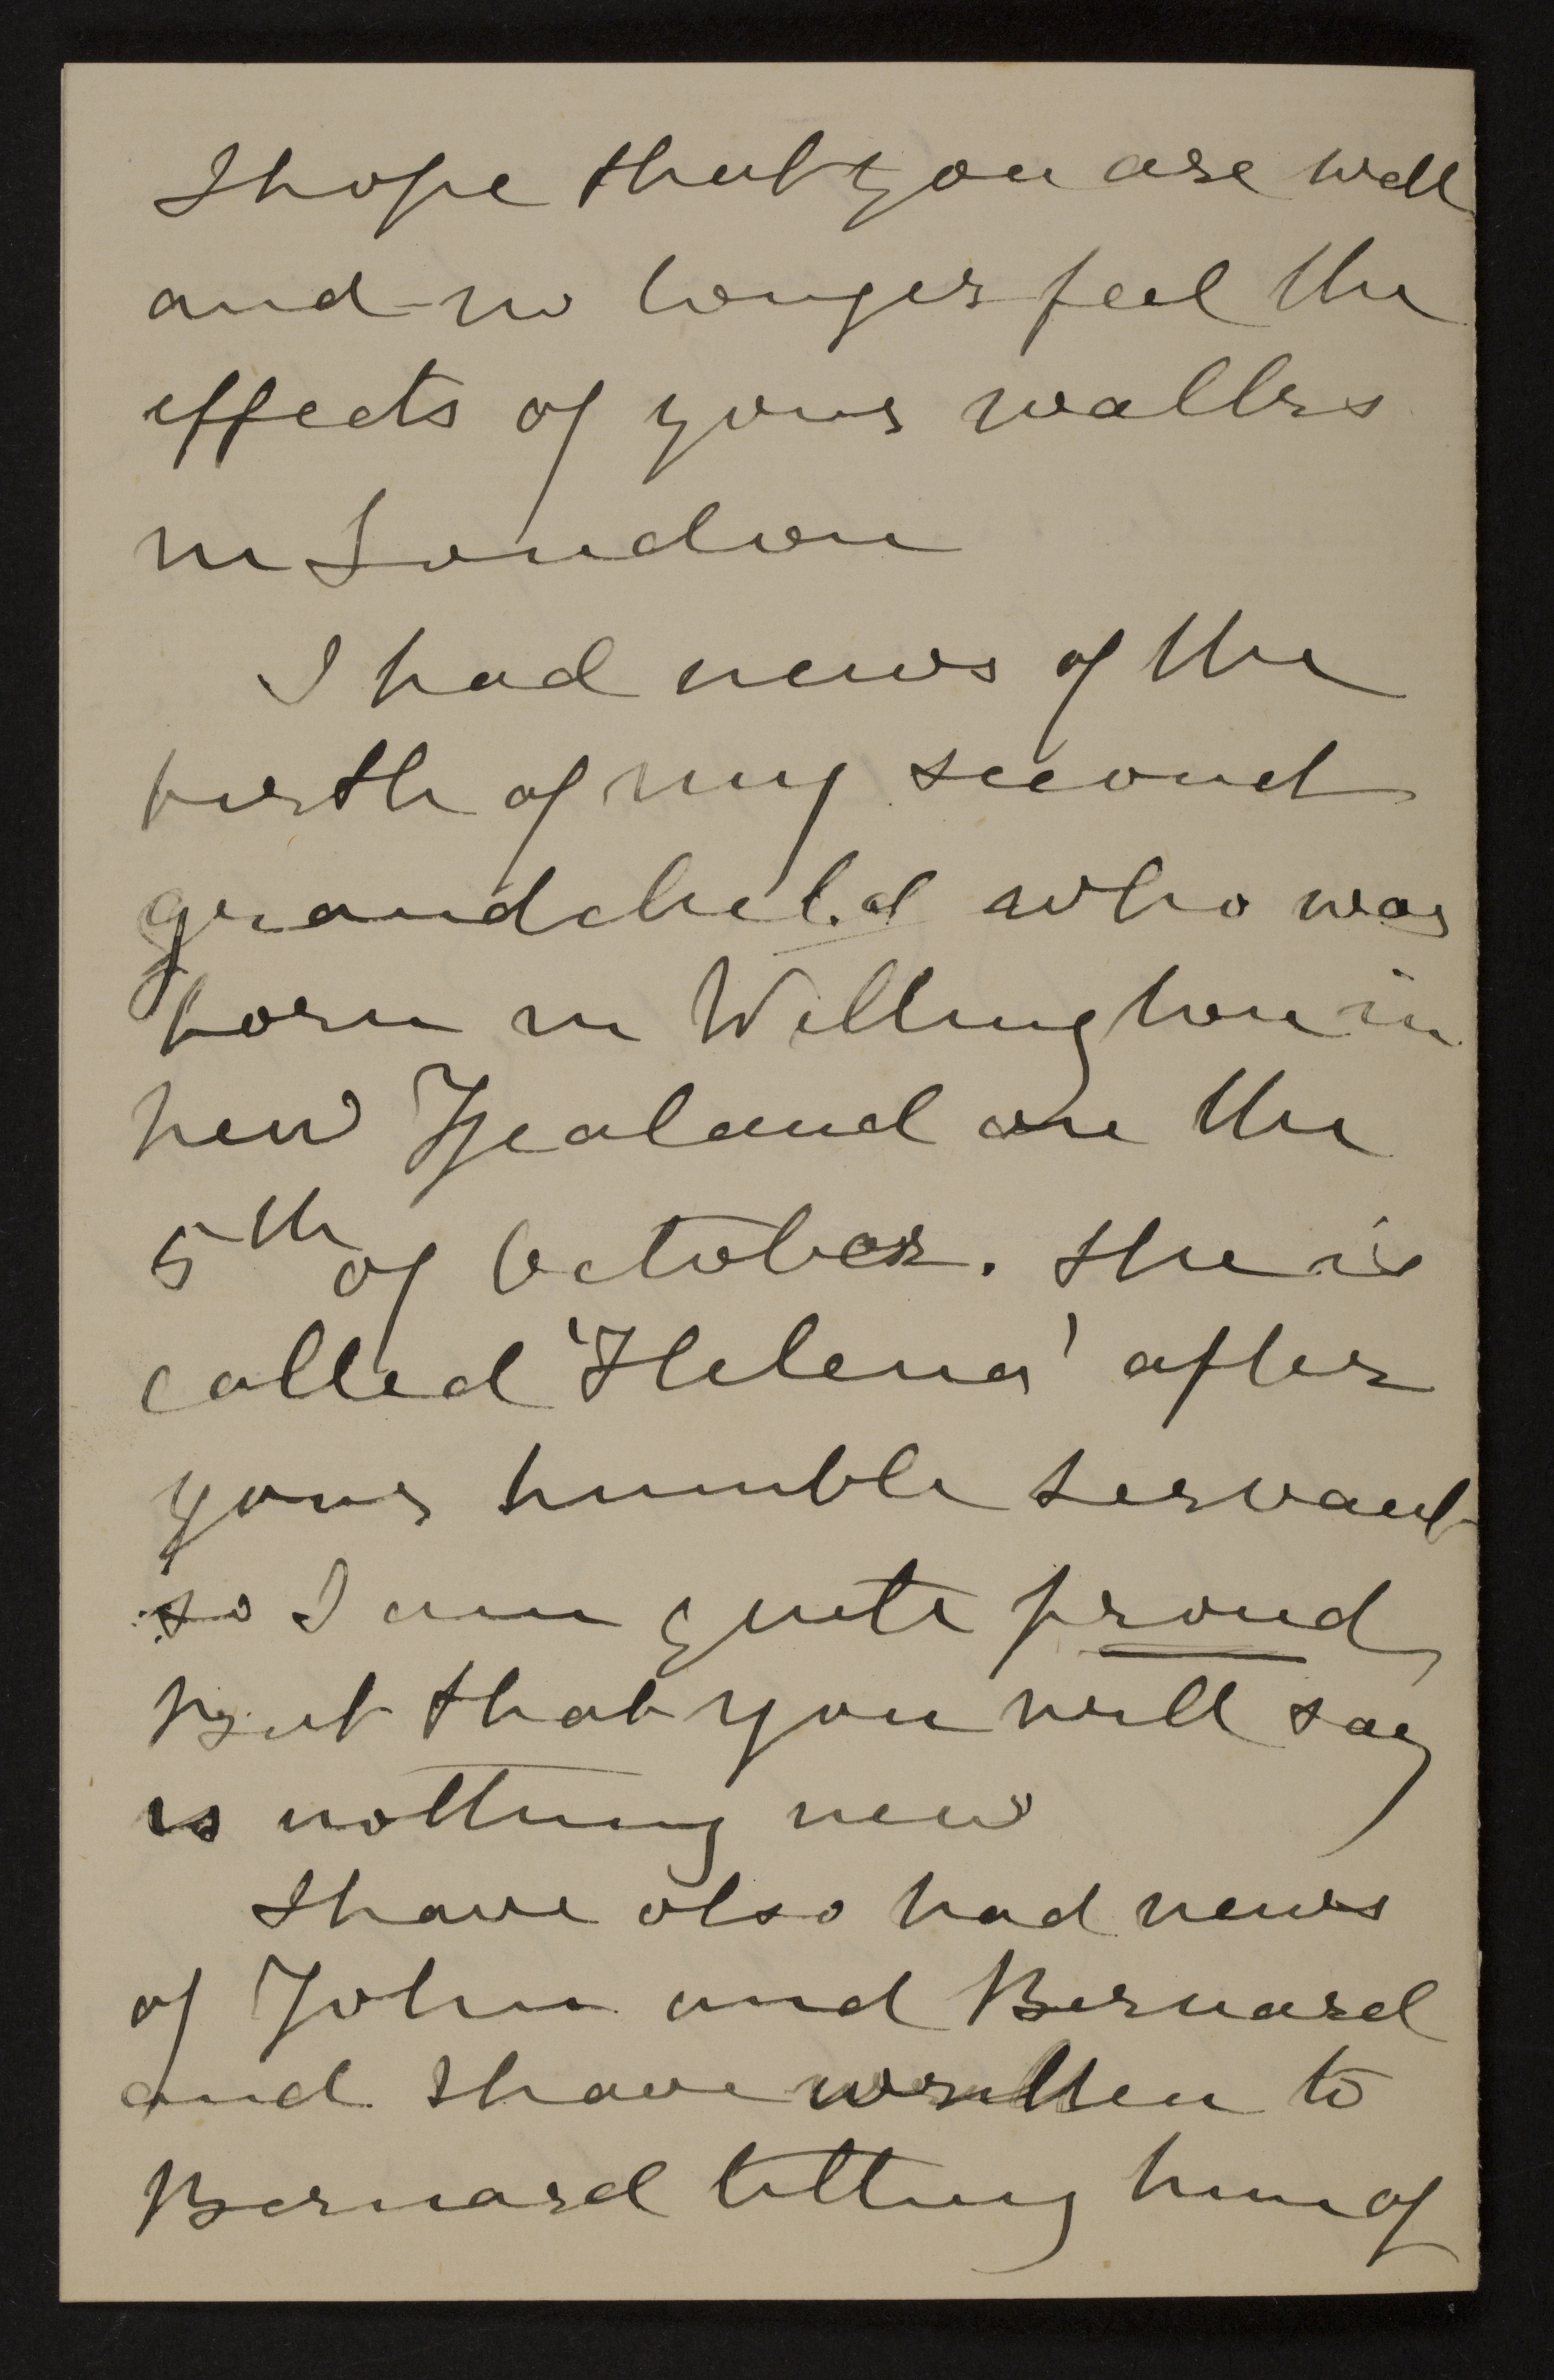 I hope that you are well
and no longer feel the
effects of your walks
in London
I had news of the
birth of my second
grandchild who was
born in Wellington in
new Zealand on the
5th of October. She is
called 'Helena' after
your humble servant
so I am quite proud
But that you will say
is nothing new
I have also had news
of John and Bernard
and I have written to
Bernard telling him of